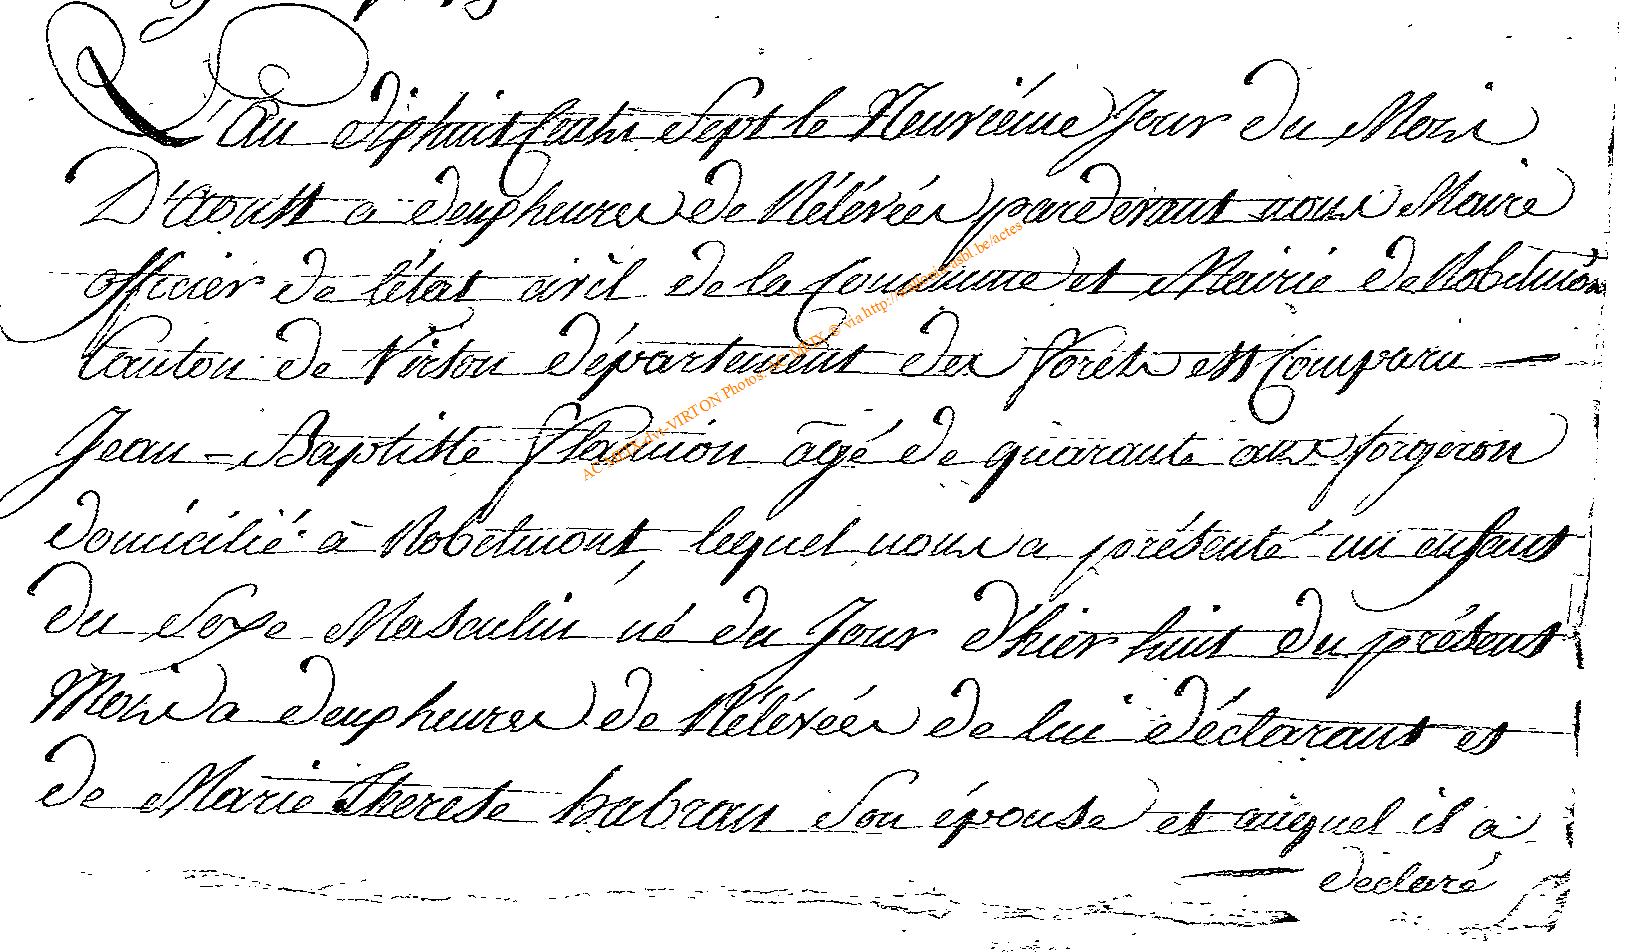 L'an dixhuit Cents Sept le Neuvième Jour du Mois
D'aoust a deuxheures de Rélévées pardevant nous Maire
officier de l'état civil de la Commune et Mairie de Robelmont
Canton de Virton département des Forêts est Comparu
Jean-Baptiste Flamion âgé de quarante ans forgeron
domicilié à Robelmont, lequel nous a présenté un enfant
du Sexe Masculin né du Jour d'hier huit du présent
Mois a deuxheures de Rélévées de lui déclarant et
de Marie Therese habran Son épouse et auquel il a
declaré